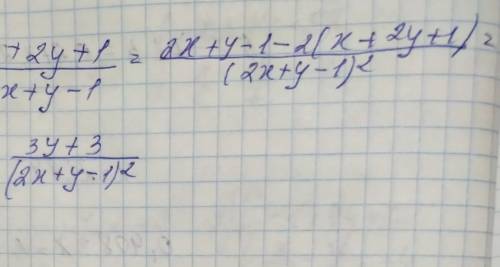 +2y+1 / x+y-1 = 2x+y-1-2(x+2y+1) / (2x+y-1)² =
3y+3 / (2x+y-1)²